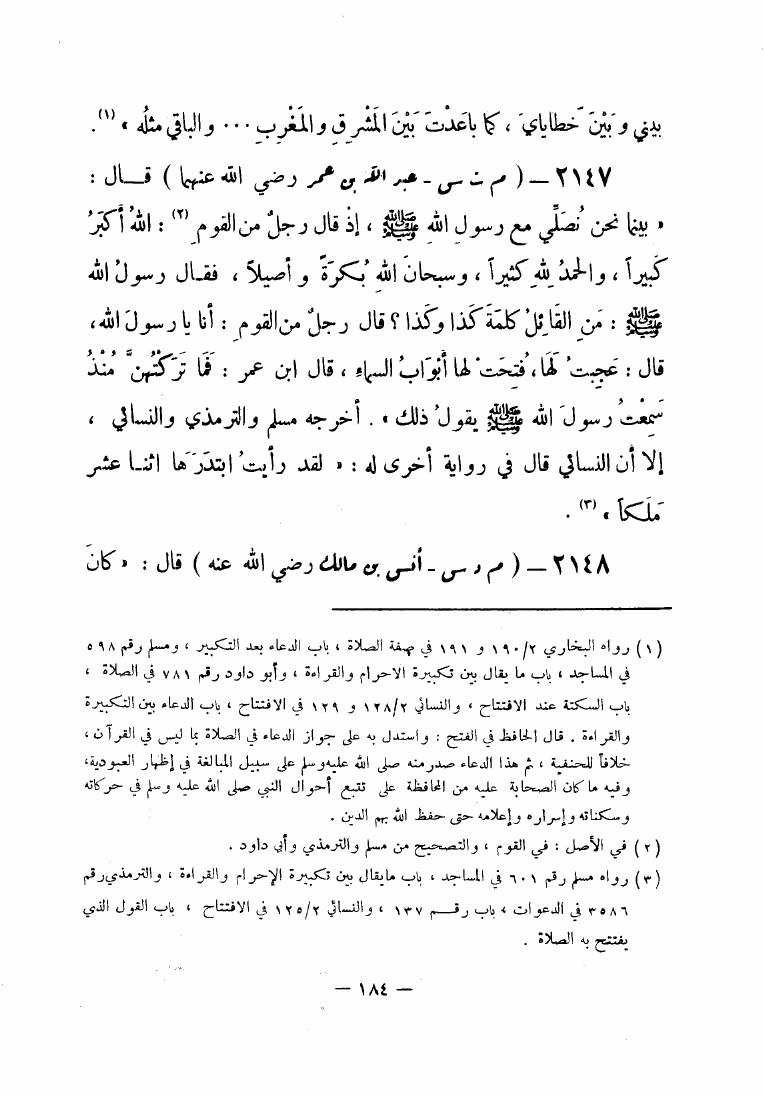 بيني و بَيْنَ خطايايَ ، كما باعَدْتَ بَيْنَ المَشْرِقِ والمَغْرِبِ ... والباقي مثلُه » (١).
٢١٤٧ – ( م ت س - عبر اللّه بن عمر رضي الله عنهما ) قـــال :
« بينما نحن نُصَلِّي مع رسولِ اللهِ ﷺ ، إذْ قال رجلٌ من القومِ (٢) : اللهُ أكْبَرُ
كَبيراً ، والحمدُ للهِ كثيراً ، وسبحانَ اللهِ بُكرَةً وأصيلاً ، فقـال رسولُ الله
ﷺ : مَنِ القَائِلُ كلمَةَ كَذا وكَذا ؟ قال رجلٌ من القومِ : أنا يا رسولَ الله ،
قال : عَجِبتُ لَهَا ، فُتِحَتْ لها أبْوَابُ السماءِ ، قال ابن عمر : فَمَا تَرَكْتُهُنَّ مُنْذُ
سَمِعْتُ رسولَ الله ﷺ يقولُ ذلك » . أخرجه مسلم والترمذي والنسائي ،
إلا أن النسائي قال في رواية أخرى له : « لقد رأيتُ ابتدَرَها اثنـا عشر
مَلَكاً » (٣) .
٢١٤٨ – ( م د س - أنس بن مالك رضي الله عنه ) قال : « كانَ
(١) رواه البخاري ٢/١٩٠ و ١٩١ في صفة الصلاة ، باب الدعاء بعد التكبير ، ومسلم رقم ٥٩٨
في المساجد ، باب ما يقال بين تكبيرة الاحرام والقراءة ، وأبو داود رقم ٧٨١ في الصلاة ،
باب السكتة عند الافتتاح ، والنسائي ٢/١٢٨ و ١٢٩ في الافتتاح ، باب الدعاء بين التكبيرة
والقراءة . قال الحافظ في الفتح : واستدل به على جواز الدعاء في الصلاة بما ليس في القرآن ،
خلافاً للحنفية ، ثم هذا الدعاء صدر منه صلى الله عليه وسلم على سبيل المبالغة في إظهار العبودية،
وفيه ما كان الصحابة عليه من المحافظة على تتبع أحوال النبي صلى الله عليه وسلم في حركاته
وسكناته وإسراره وإعلامه حتى حفظ الله بهم الدين .
(٢) في الأصل : في القوم ، والتصحيح من مسلم والترمذي وأبي داود .
(٣) رواه مسلم رقم ٦٠١ في المساجد ، باب مايقال بين تكبيرة الإحرام والقراءة ، والترمذي رقم
٣٥٨٦ في الدعوات ، باب رقـم ١٣٧ ، والنسائي ٢/١٢٥ في الافتتاح ، باب القول الذي
يفتتح به الصلاة .
– ١٨٤ –